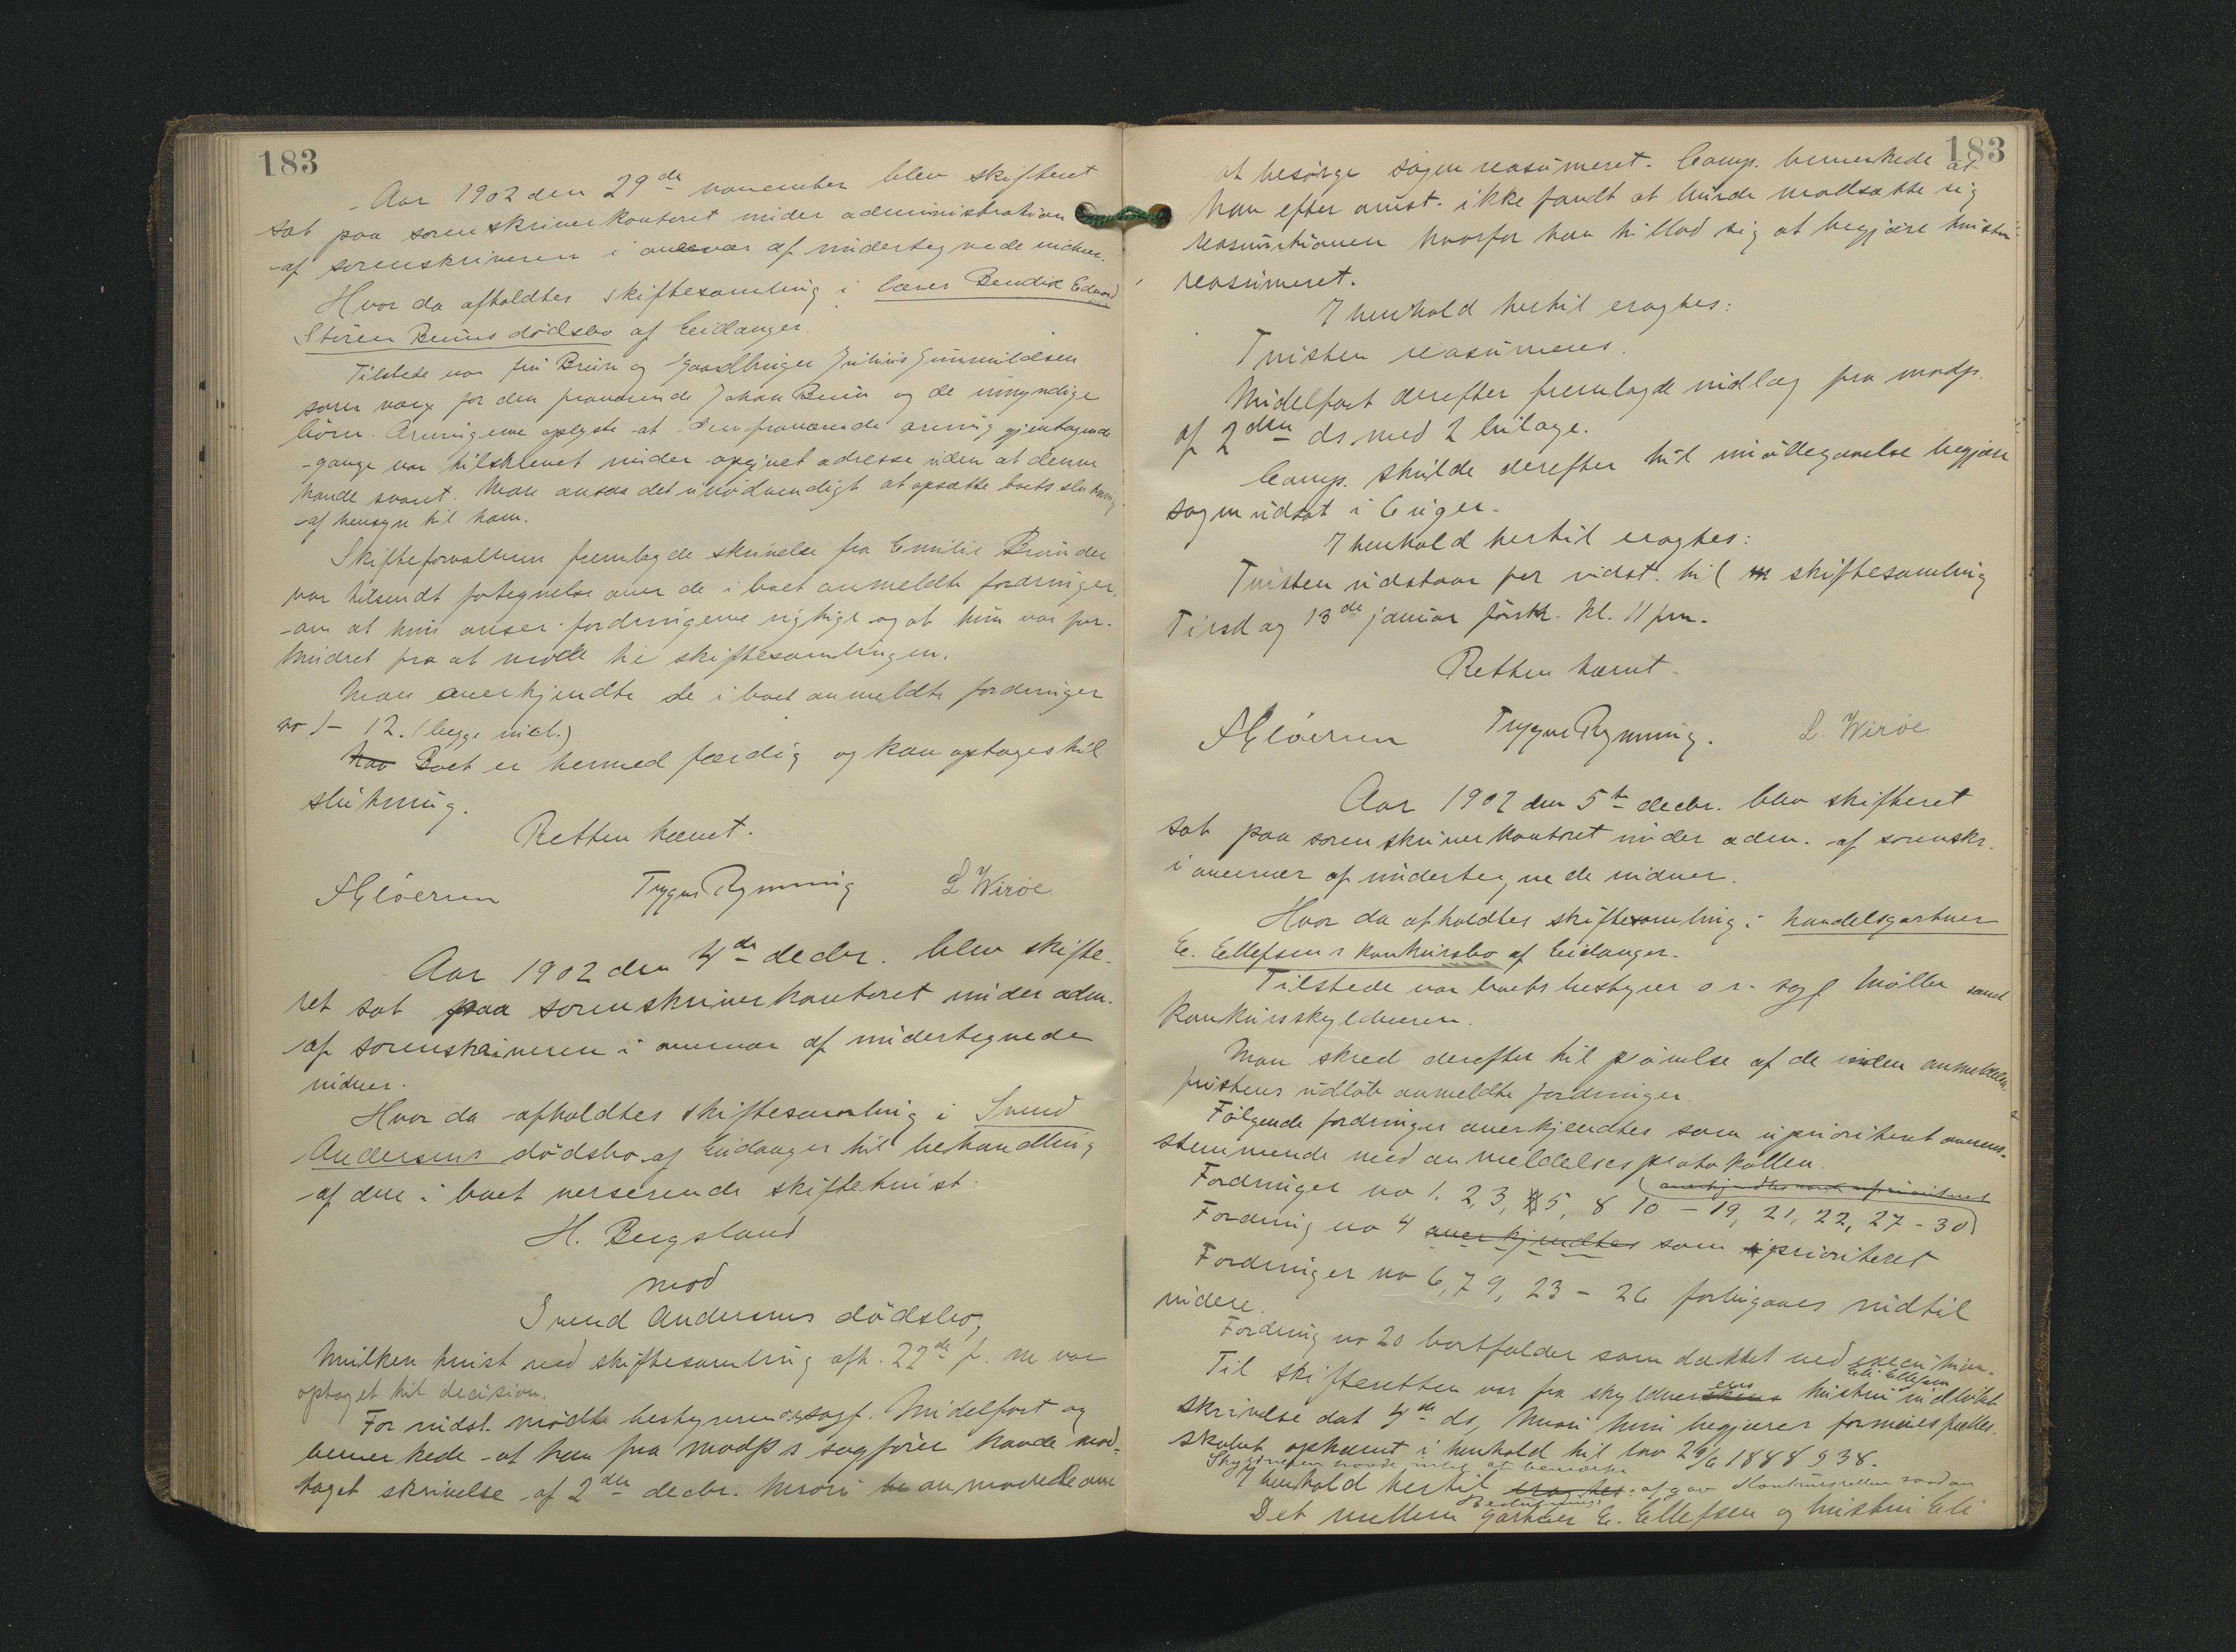 183
Aar 1902 den 29de november blev skifteret
sat paa sorenskriverkontoret under administration
af sorenskriveren i overvær af undertegnede vidner.
Hvor da afholdtes skiftesamling i lærer Bendix Edvard
Stören Bruns dödsbo af Eidanger.
Tilstede var fru Brun og gaardbruger Julius Gunnuldsen
som værge for den fraværende Johan Brun og de umyndige
börn. Arvingerne oplyste at den fraværende arving gjentagende
gange var tilskrevet under opgivet adresse uden at denne
havde svaret. Man ansaa det unödvendigt at opsætte boets slutning
af hensyn til ham.
Skifteforvalteren fremlagde skrivelse fra Emilie Brun der
var tilsendt fortegnelse over de i boet anmeldte fordringer,
om at hun anser fordringerne rigtige og at hun var for-
hindret fra at möde til skiftesamlingen.
Man anerkjendte de i boet anmeldte fordringer
no 1 - 12. (begge incl.)
Boet er hermed færdig og kan optages til
slutning.
Retten hævet.
Trygve Rynning L. Wiröe
Aar 1902 den 4de decbr. blev skifte-
ret sat paa sorenskriverkontoret under adm.
af sorenskriveren i overvær af undertegnede
vidner.
Hvor da afholdtes skiftesamling i Svend
Andersens dödsbo af Eidanger til behandling
af den i boet verserende skiftetvist:
H. Bergsland
mod
Svend Andersens dödsbo,
hvilken tvist ved skiftesamling afh. 22de f. m. var
optaget til decision.
For vidst. mödte bestyreren orsagf. Midelfart og
bemerkede at han fra modp.s sagförer havde mod-
taget skrivelse af 2den decbr. hvori anmodede om
183
at besörge sagen reasumeret. Comp. bemerkede at
han efter omst. ikke fandt at burde modsætte sig
reasumtionen hvorfor han tillod sig at begjære tvisten
reasumeret.
I henhold hertil eragtes:
Tvisten reasumeres.
Midelfart derefter fremlagde indlæg fra modp.
af 2den ds med 2 bilage.
Comp. skulde derefter til imödegaaelse begjære
sagen udsat i 6 uger.
I henhold hertil eragtes:
Tvisten udstaar per vidst. til skiftesamling
Tirsdag 13de januar förstk. kl. 11 fm.
Retten hævet.
Trygve Rynning. L. Wiröe
Aar 1902 den 5te decbr. blev skifteret
sat paa sorenskriverkontoret under adm. af sorenskr.
i overvær af undertegnede vidner.
Hvor da afholdtes skiftesamling i handelsgartner
E. Ellefsens konkursbo af Eidanger.
Tilstede var boets bestyrer o.r. sagf Möller samt
konkursskyldneren.
Man skred derefter til prövelse af de inden anmeldelses-
fristens udlöb anmeldte fordringer.
Fölgende fordringer anerkjendtes som uprioriteret overens-
stemmende med anmeldelsesprotokollen.
anerkjendtes som uprioriteret
Fordringer no 1, 2, 3, 5, 8 10 - 19, 21, 22, 27 - 30
Fordring no 4 anerkjendtes som prioriteret
Fordringer no 6, 7 9, 23 - 26 forbigaaes indtil
videre.
Fordring no 20 bortfalder som dækket ved execution.
Eli Ellefsen
Til skifteretten var fra skyldnerens hustru indlöbet
skrivelse dat 4de ds, hvori hun begjærer formuesfælles-
skabet ophævet i henhold til lov 29/6 1888 § 38.
Skyldneren havde intet at bemærke
I henhold hertil eragtes: afgav Konkursretten saadan
Beslutning:
Det mellem gartner E. Ellefsen og hustru Eli